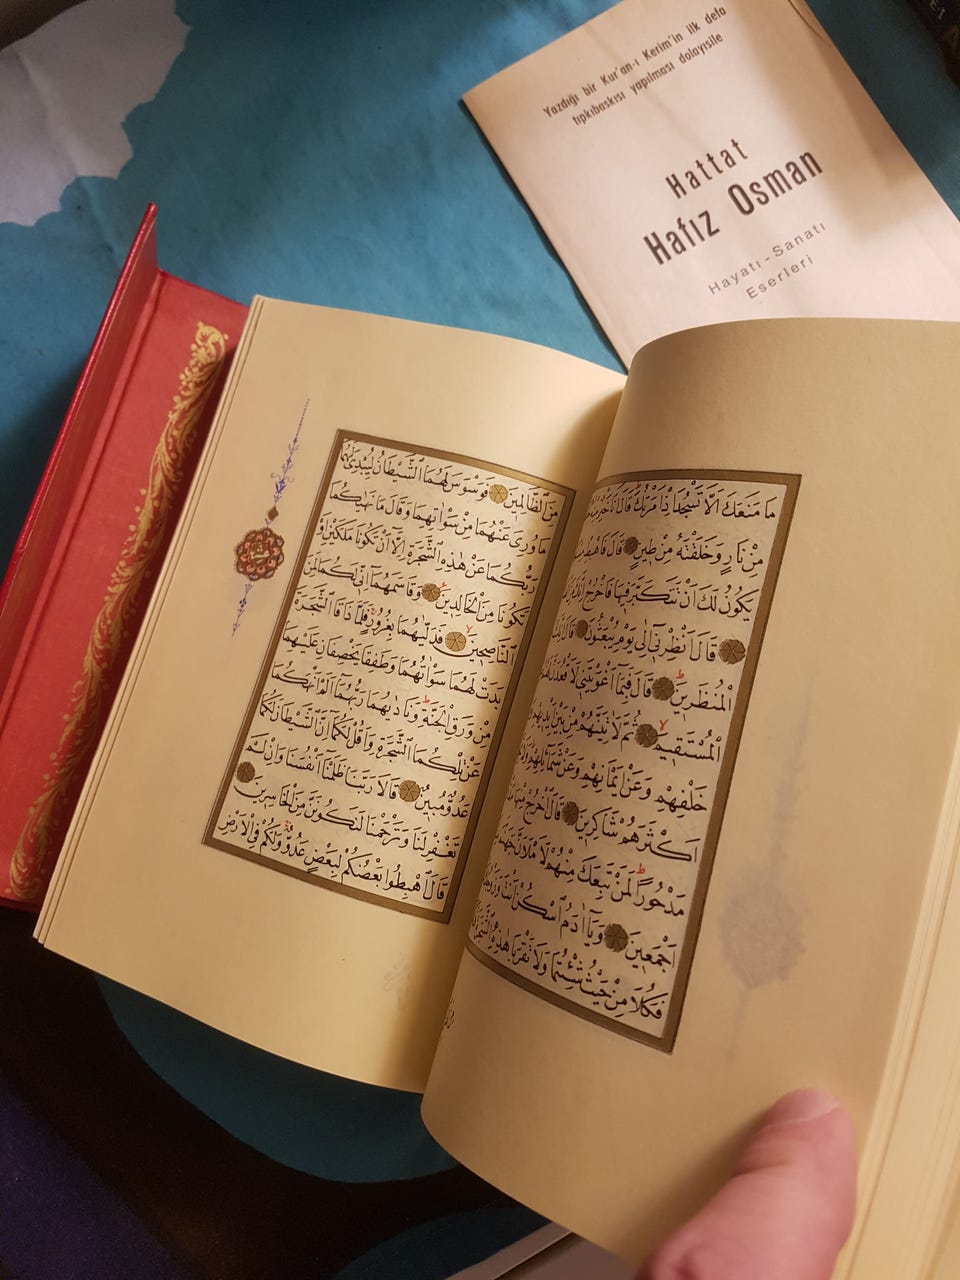 Yazdığı bir Kur'an-ı Kerim'in ilk defa
tıpkıbaskısı yapılması dolayısile
Hattat
Hafız Osman
Hayatı-Sanatı
Eserleri
مَا مَنَعَكَ اَلَّا تَسْجُدَ اِذْ اَمَرْتُكَ قَالَ اَنَا خَيْرٌ
مِنْ نَارٍ وَخَلَقْتَهُ مِنْ طِينٍ قَالَ فَاهْبِطْ
يَكُونُ لَكَ اَنْ تَتَكَبَّرَ فِيهَا فَاخْرُجْ اِنَّكَ
قَالَ اَنْظِرْنِي اِلٰى يَوْمِ يُبْعَثُونَ قَالَ اِنَّكَ
الْمُنْظَرِينَ قَالَ فَبِمَا اَغْوَيْتَنِي لَاَقْعُدَنَّ
الْمُسْتَقِيمَ ثُمَّ لَاٰتِيَنَّهُمْ مِنْ بَيْنِ اَيْدِيهِمْ
خَلْفِهِمْ وَعَنْ اَيْمَانِهِمْ وَعَنْ شَمَائِلِهِمْ وَلَا
اَكْثَرَهُمْ شَاكِرِينَ قَالَ اخْرُجْ مِنْهَا
مَدْحُورًا لَمَنْ تَبِعَكَ مِنْهُمْ لَاَمْلَاَنَّ جَهَنَّمَ
اَجْمَعِينَ وَيَا اٰدَمُ اسْكُنْ اَنْتَ وَزَوْجُكَ
فَكُلَا مِنْ حَيْثُ شِئْتُمَا وَلَا تَقْرَبَا هٰذِهِ الشَّجَرَةَ
مِنَ الظَّالِمِينَ فَوَسْوَسَ لَهُمَا الشَّيْطَانُ لِيُبْدِيَ لَهُمَا
مَا وُرِيَ عَنْهُمَا مِنْ سَوْاٰتِهِمَا وَقَالَ مَا نَهٰيكُمَا
رَبُّكُمَا عَنْ هٰذِهِ الشَّجَرَةِ اِلَّا اَنْ تَكُونَا مَلَكَيْنِ اَوْ
تَكُونَا مِنَ الْخَالِدِينَ وَقَاسَمَهُمَا اِنِّي لَكُمَا لَمِنَ
النَّاصِحِينَ فَدَلّٰيهُمَا بِغُرُورٍ فَلَمَّا ذَاقَا الشَّجَرَةَ
بَدَتْ لَهُمَا سَوْاٰتُهُمَا وَطَفِقَا يَخْصِفَانِ عَلَيْهِمَا
مِنْ وَرَقِ الْجَنَّةِ وَنَادٰيهُمَا رَبُّهُمَا اَلَمْ اَنْهَكُمَا
عَنْ تِلْكُمَا الشَّجَرَةِ وَاَقُلْ لَكُمَا اِنَّ الشَّيْطَانَ لَكُمَا
عَدُوٌّ مُبِينٌ قَالَا رَبَّنَا ظَلَمْنَا اَنْفُسَنَا وَاِنْ لَمْ
تَغْفِرْ لَنَا وَتَرْحَمْنَا لَنَكُونَنَّ مِنَ الْخَاسِرِينَ
قَالَ اهْبِطُوا بَعْضُكُمْ لِبَعْضٍ عَدُوٌّ وَلَكُمْ فِي الْاَرْضِ